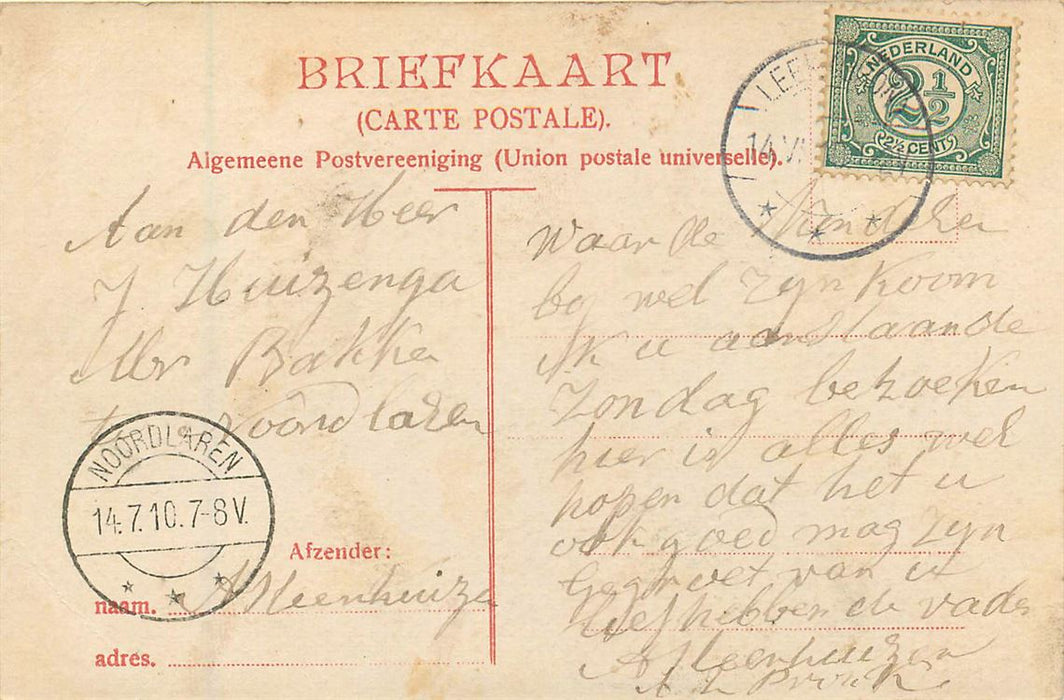 BRIEFKAART
(CARTE POSTALE).
Algemeene Postvereeniging (Union postale universelle).
NEDERLAND
2½
2½ CENT
14 VI
Aan den Heer
J. Huizenga
Mr Bakker
te Noordlaren
NOORDLAREN
14.7.10.7-8V.
Afzender:
naam. A Meenhuize
adres.
Waar de
by wel zyn koom
ik u aanstaande
Zondag bezoeken
hier is alles wel
hopen dat het u
ook goed mag zyn
Gegroet van u
Liefhebbende vader
A Meenhuizen